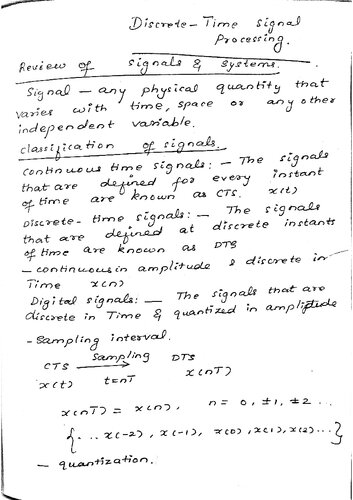 Discrete-Time signal
Processing.
Review of signals & systems.
Signal – any physical quantity that
varies with time, space or any other
independent variable.
classification of signals.
continuous time signals: – The signals
that are defined for every instant
of time are known as CTS. x(t)
Discrete-time signals: – The signals
that are defined at discrete instants
of time are known as DTS
– continuous in amplitude & discrete in
Time x(n)
Digital signals: – The signals that are
discrete in Time & quantized in amplitude
- Sampling interval.
CTS Sampling → DTS
x(t) t=nT x(nT)
x(nT) = x(n), n = 0, ±1, ±2 ...
{... x(-2), x(-1), x(0), x(1), x(2) ...}
– quantization.